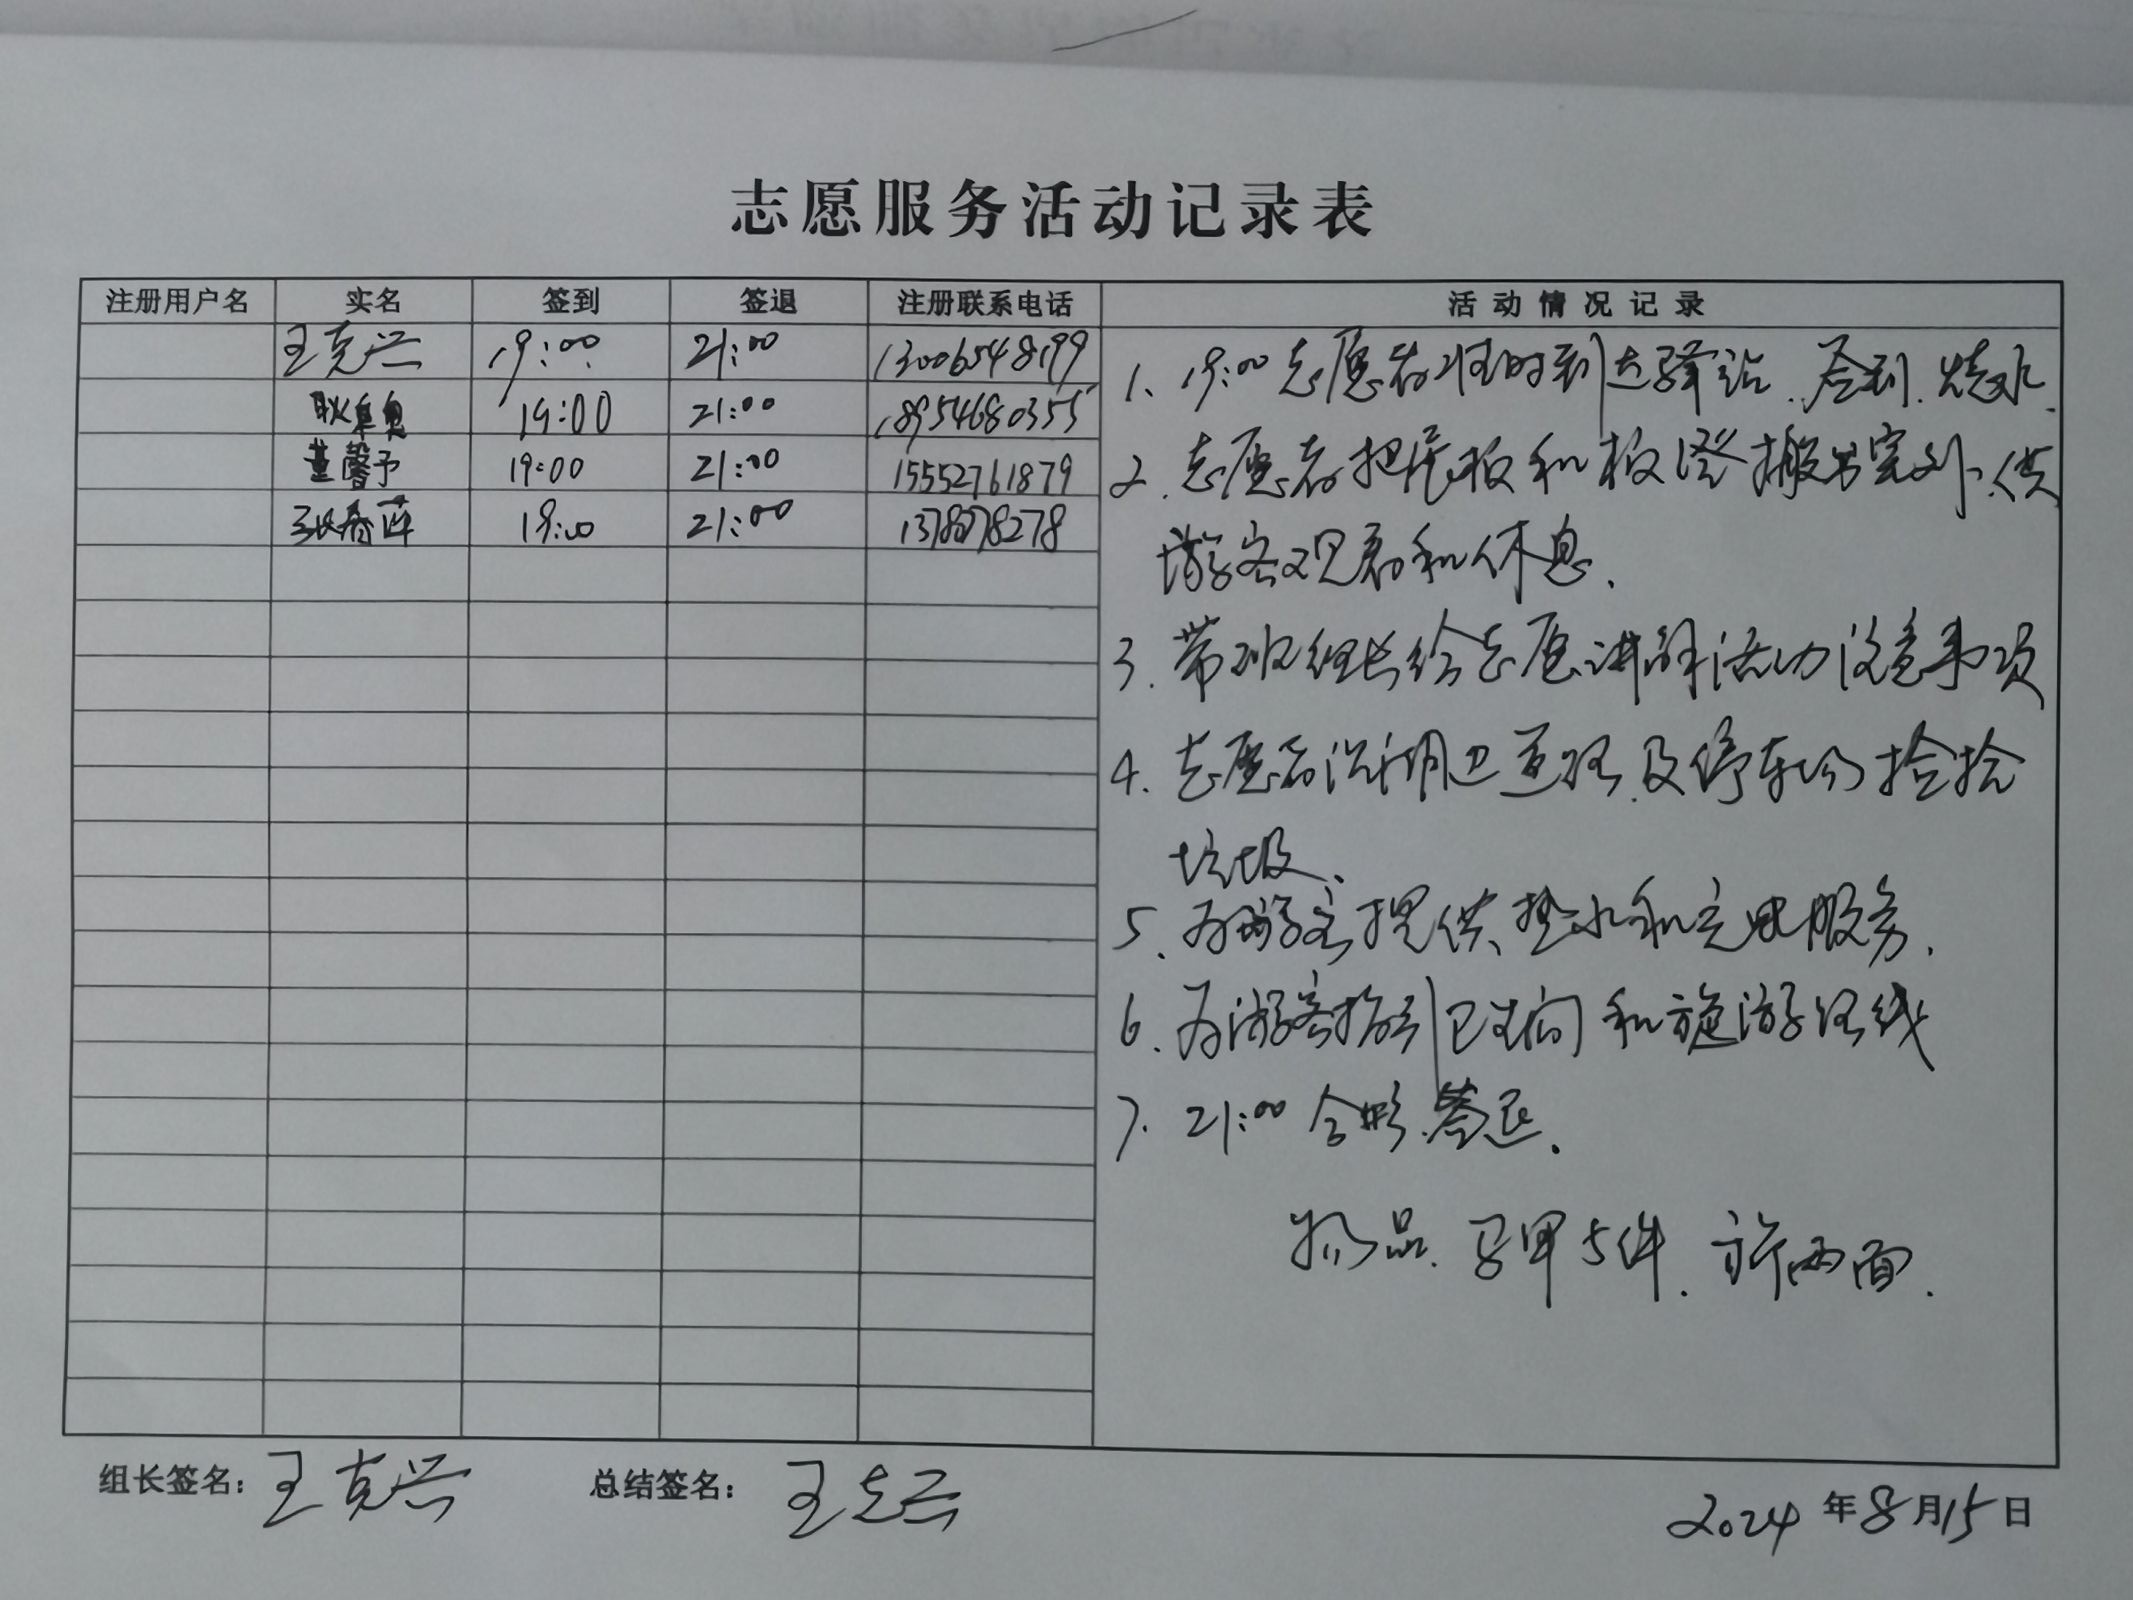 志愿服务活动记录表
注册用户名 实名 签到 签退 注册联系电话 活动情况记录
王克兴 19:00 21:00 13006548199
19:00 21:00 18954680355
董馨予 19:00 21:00 15552761879
张春萍 19:00 21:00
1、19:00志愿者准时到达驿站.签到.烧水.
2.志愿者把展板和板凳搬出室外、供
游客观看和休息.
3.带班组长给志愿讲解活动注意事项
4.志愿者沿湖边道路.及停车场捡拾
垃圾、
5、为游客提供、热水和充电服务.
6、为游客指引卫生间和旅游路线
7.21:00合影.签退.
物品.马甲5件.旗两面.
组长签名: 王克兴 总结签名: 王克兴
2024年8月15日